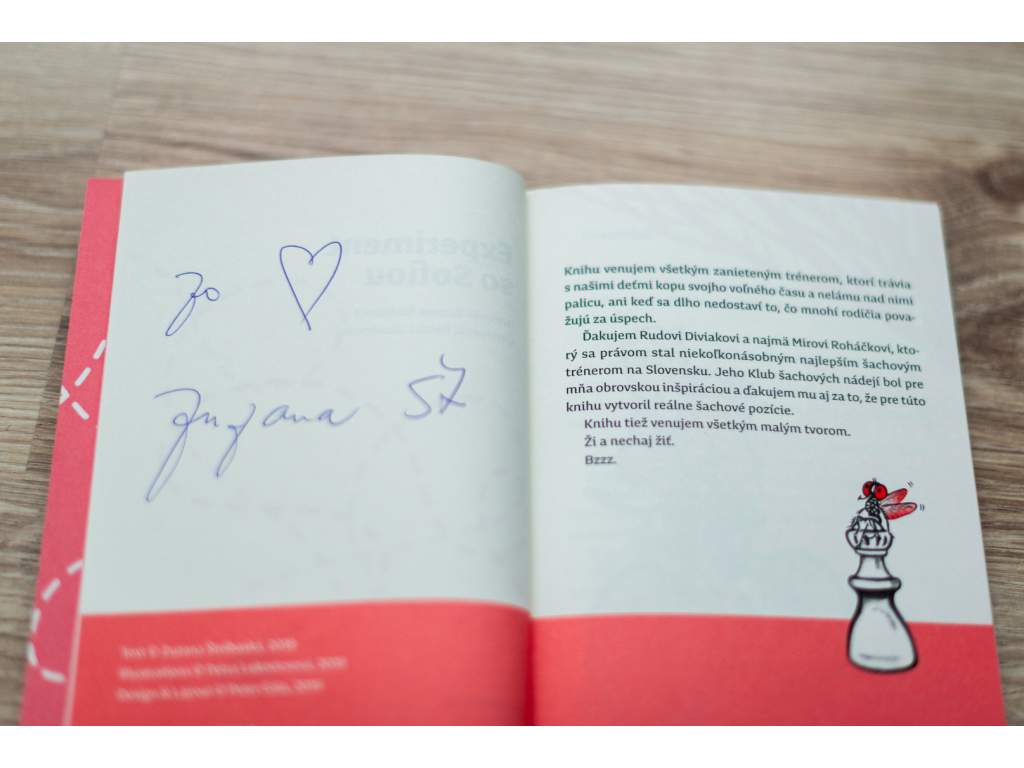 Zo
Zuzana SŽ
Text ©
Illustrations © Petra
Design & Layout © Peter
Knihu venujem všetkým zanieteným trénerom, ktorí trávia
s našimi deťmi kopu svojho voľného času a nelámu nad nimi
palicu, ani keď sa dlho nedostaví to, čo mnohí rodičia pova-
žujú za úspech.
Ďakujem Rudovi Diviakovi a najmä Mirovi Roháčkovi, kto-
rý sa právom stal niekoľkonásobným najlepším šachovým
trénerom na Slovensku. Jeho Klub šachových nádejí bol pre
mňa obrovskou inšpiráciou a ďakujem mu aj za to, že pre túto
knihu vytvoril reálne šachové pozície.
Knihu tiež venujem všetkým malým tvorom.
Ži a nechaj žiť.
Bzzz.